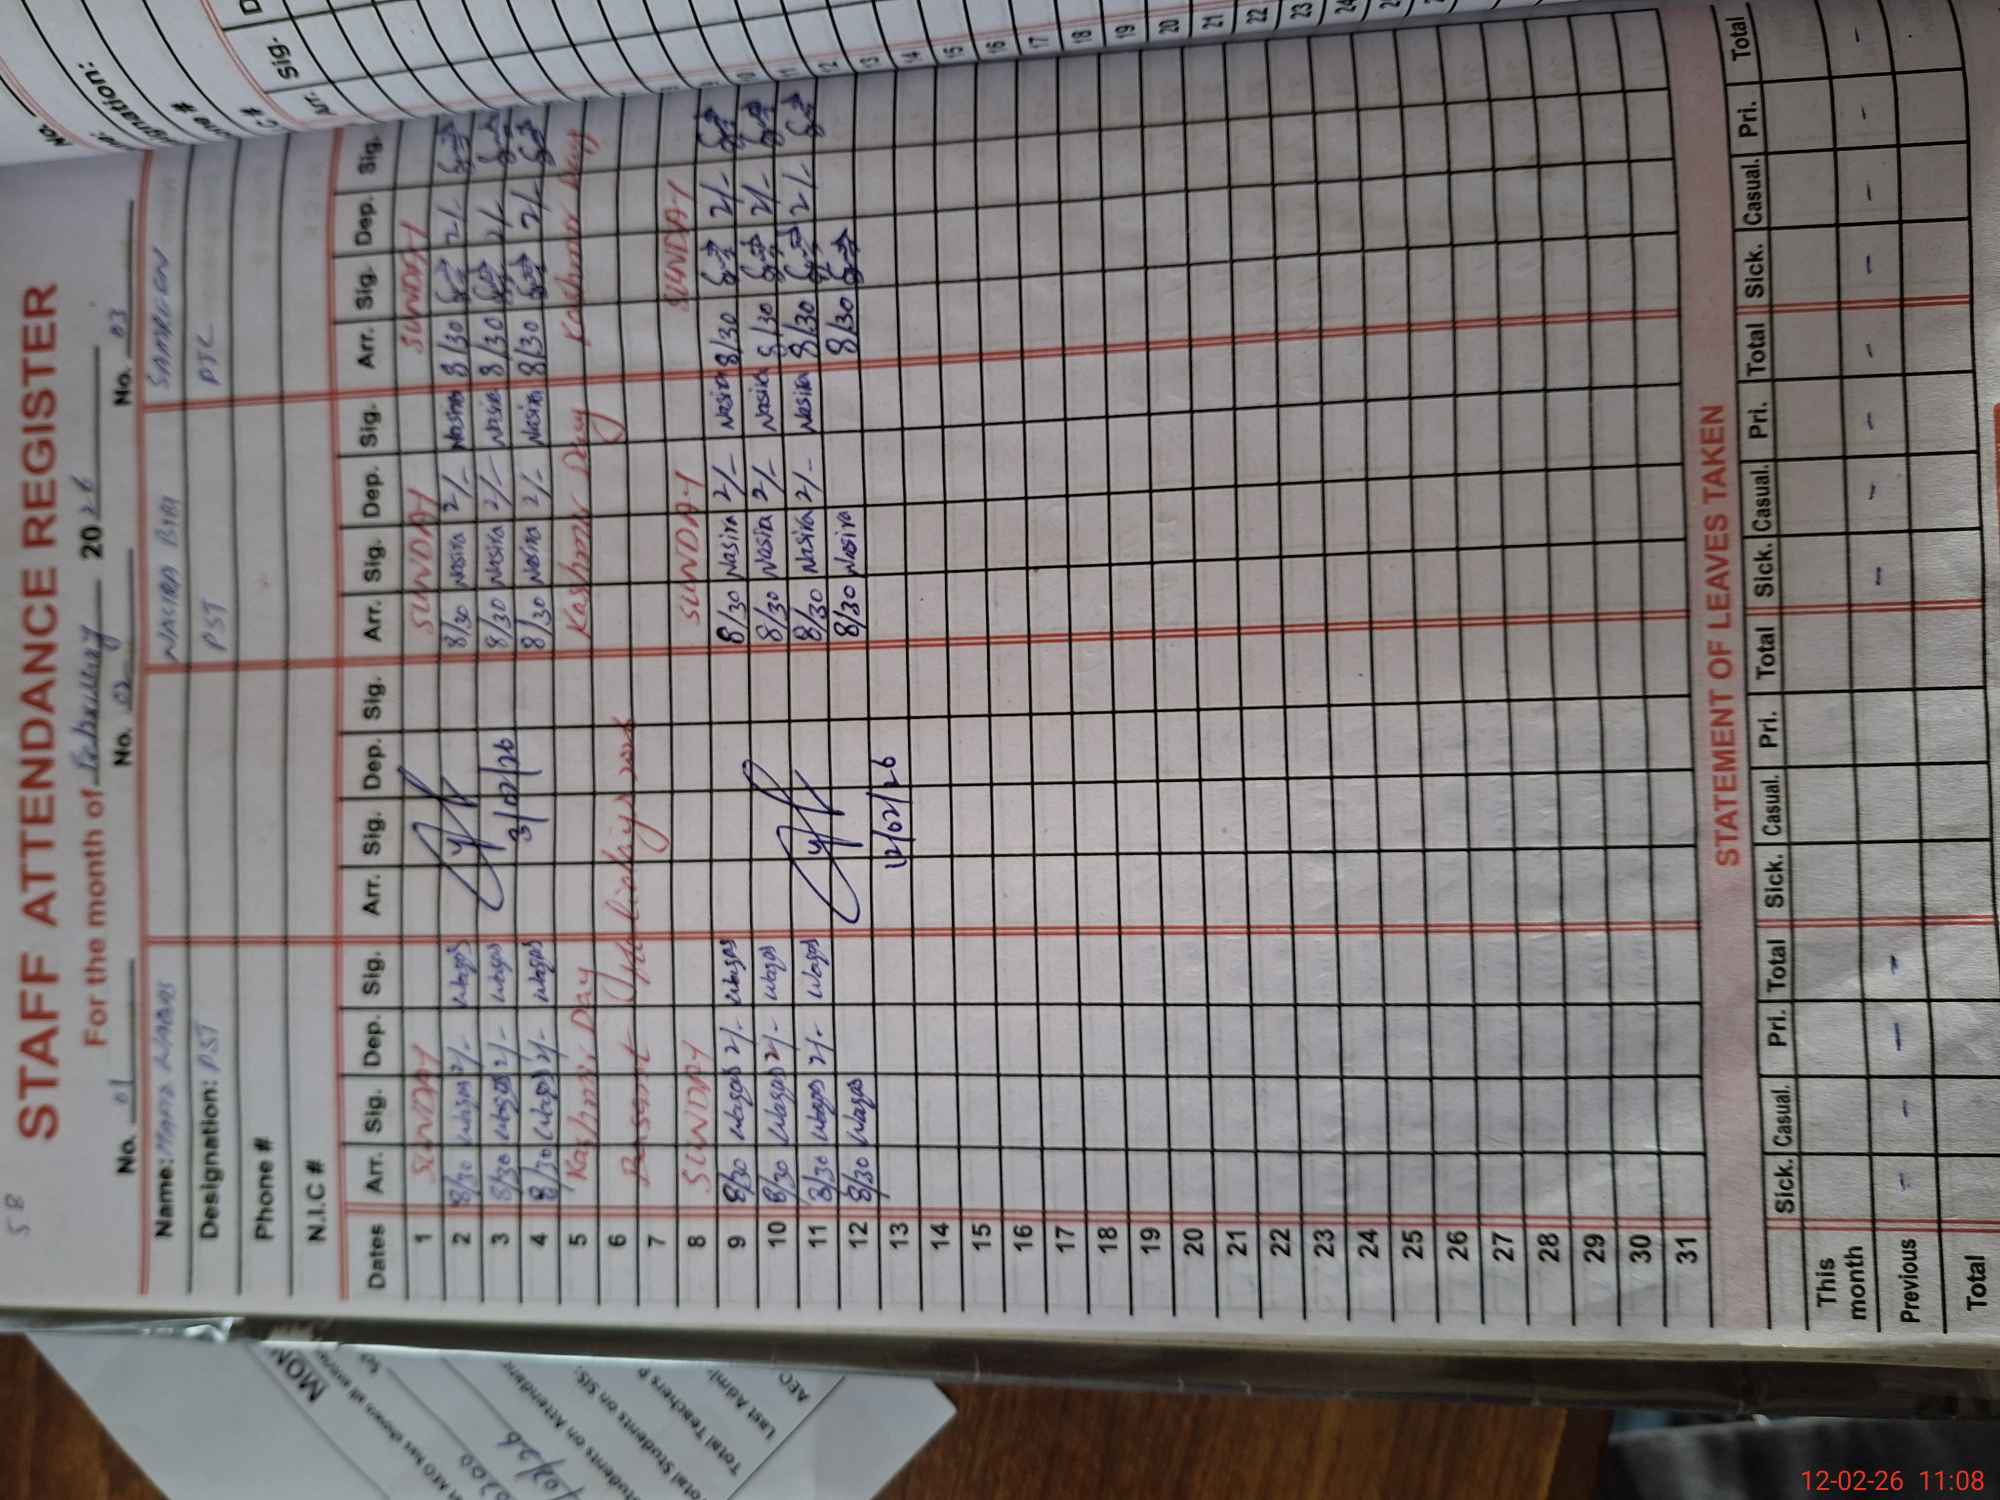 58
STAFF ATTENDANCE REGISTER
For the month of February 2026
No. 01 No. 02 No. 03
Name: WAQAS NAKIRA BIBI
Designation: PST PST PTC
Phone #
N.I.C #
Dates Arr. Sig. Dep. Sig. Arr. Sig. Dep. Sig. Arr. Sig. Dep. Sig. Arr. Sig. Dep. Sig.
1 SUNDAY SUNDAY SUNDAY
2 8/30 Waqas 2/- Waqas 8/30 Nasira 2/- Nasira 8/30 2/-
3 8/30 Waqas 2/- Waqas 3/02/26 8/30 Nasira 2/- Nasira 8/30 2/-
4 8/30 Waqas 2/- Waqas 8/30 Nasira 2/- Nasira 8/30 2/-
5 Kashmir Day Kashmir Day Kashmir Day
6 Bassant 2026
7
8 SUNDAY SUNDAY SUNDAY
9 8/30 Waqas 2/- Waqas 8/30 Nasira 2/- Nasira 8/30 2/-
10 8/30 Waqas 2/- Waqas 8/30 Nasira 2/- Nasira 8/30 2/-
11 8/30 Waqas 2/- Waqas 8/30 Nasira 2/- Nasira 8/30 2/-
12 8/30 Waqas 8/30 Nasira 8/30
13 12/02/26
14
15
16
17
18
19
20
21
22
23
24
25
26
27
28
29
30
31
STATEMENT OF LEAVES TAKEN
Sick. Casual. Pri. Total Sick. Casual. Pri. Total Sick. Casual. Pri. Total Sick. Casual. Pri. Total
This month
Previous - - - - - - - - - - - -
Total
No.
Sig.
9
10
11
12
13
14
15
16
17
18
19
20
21
22
23
24
MON
AEO has shown all
Total Students on SIS:
Total Teachers P
Last Admi-
AEO
12-02-26 11:08